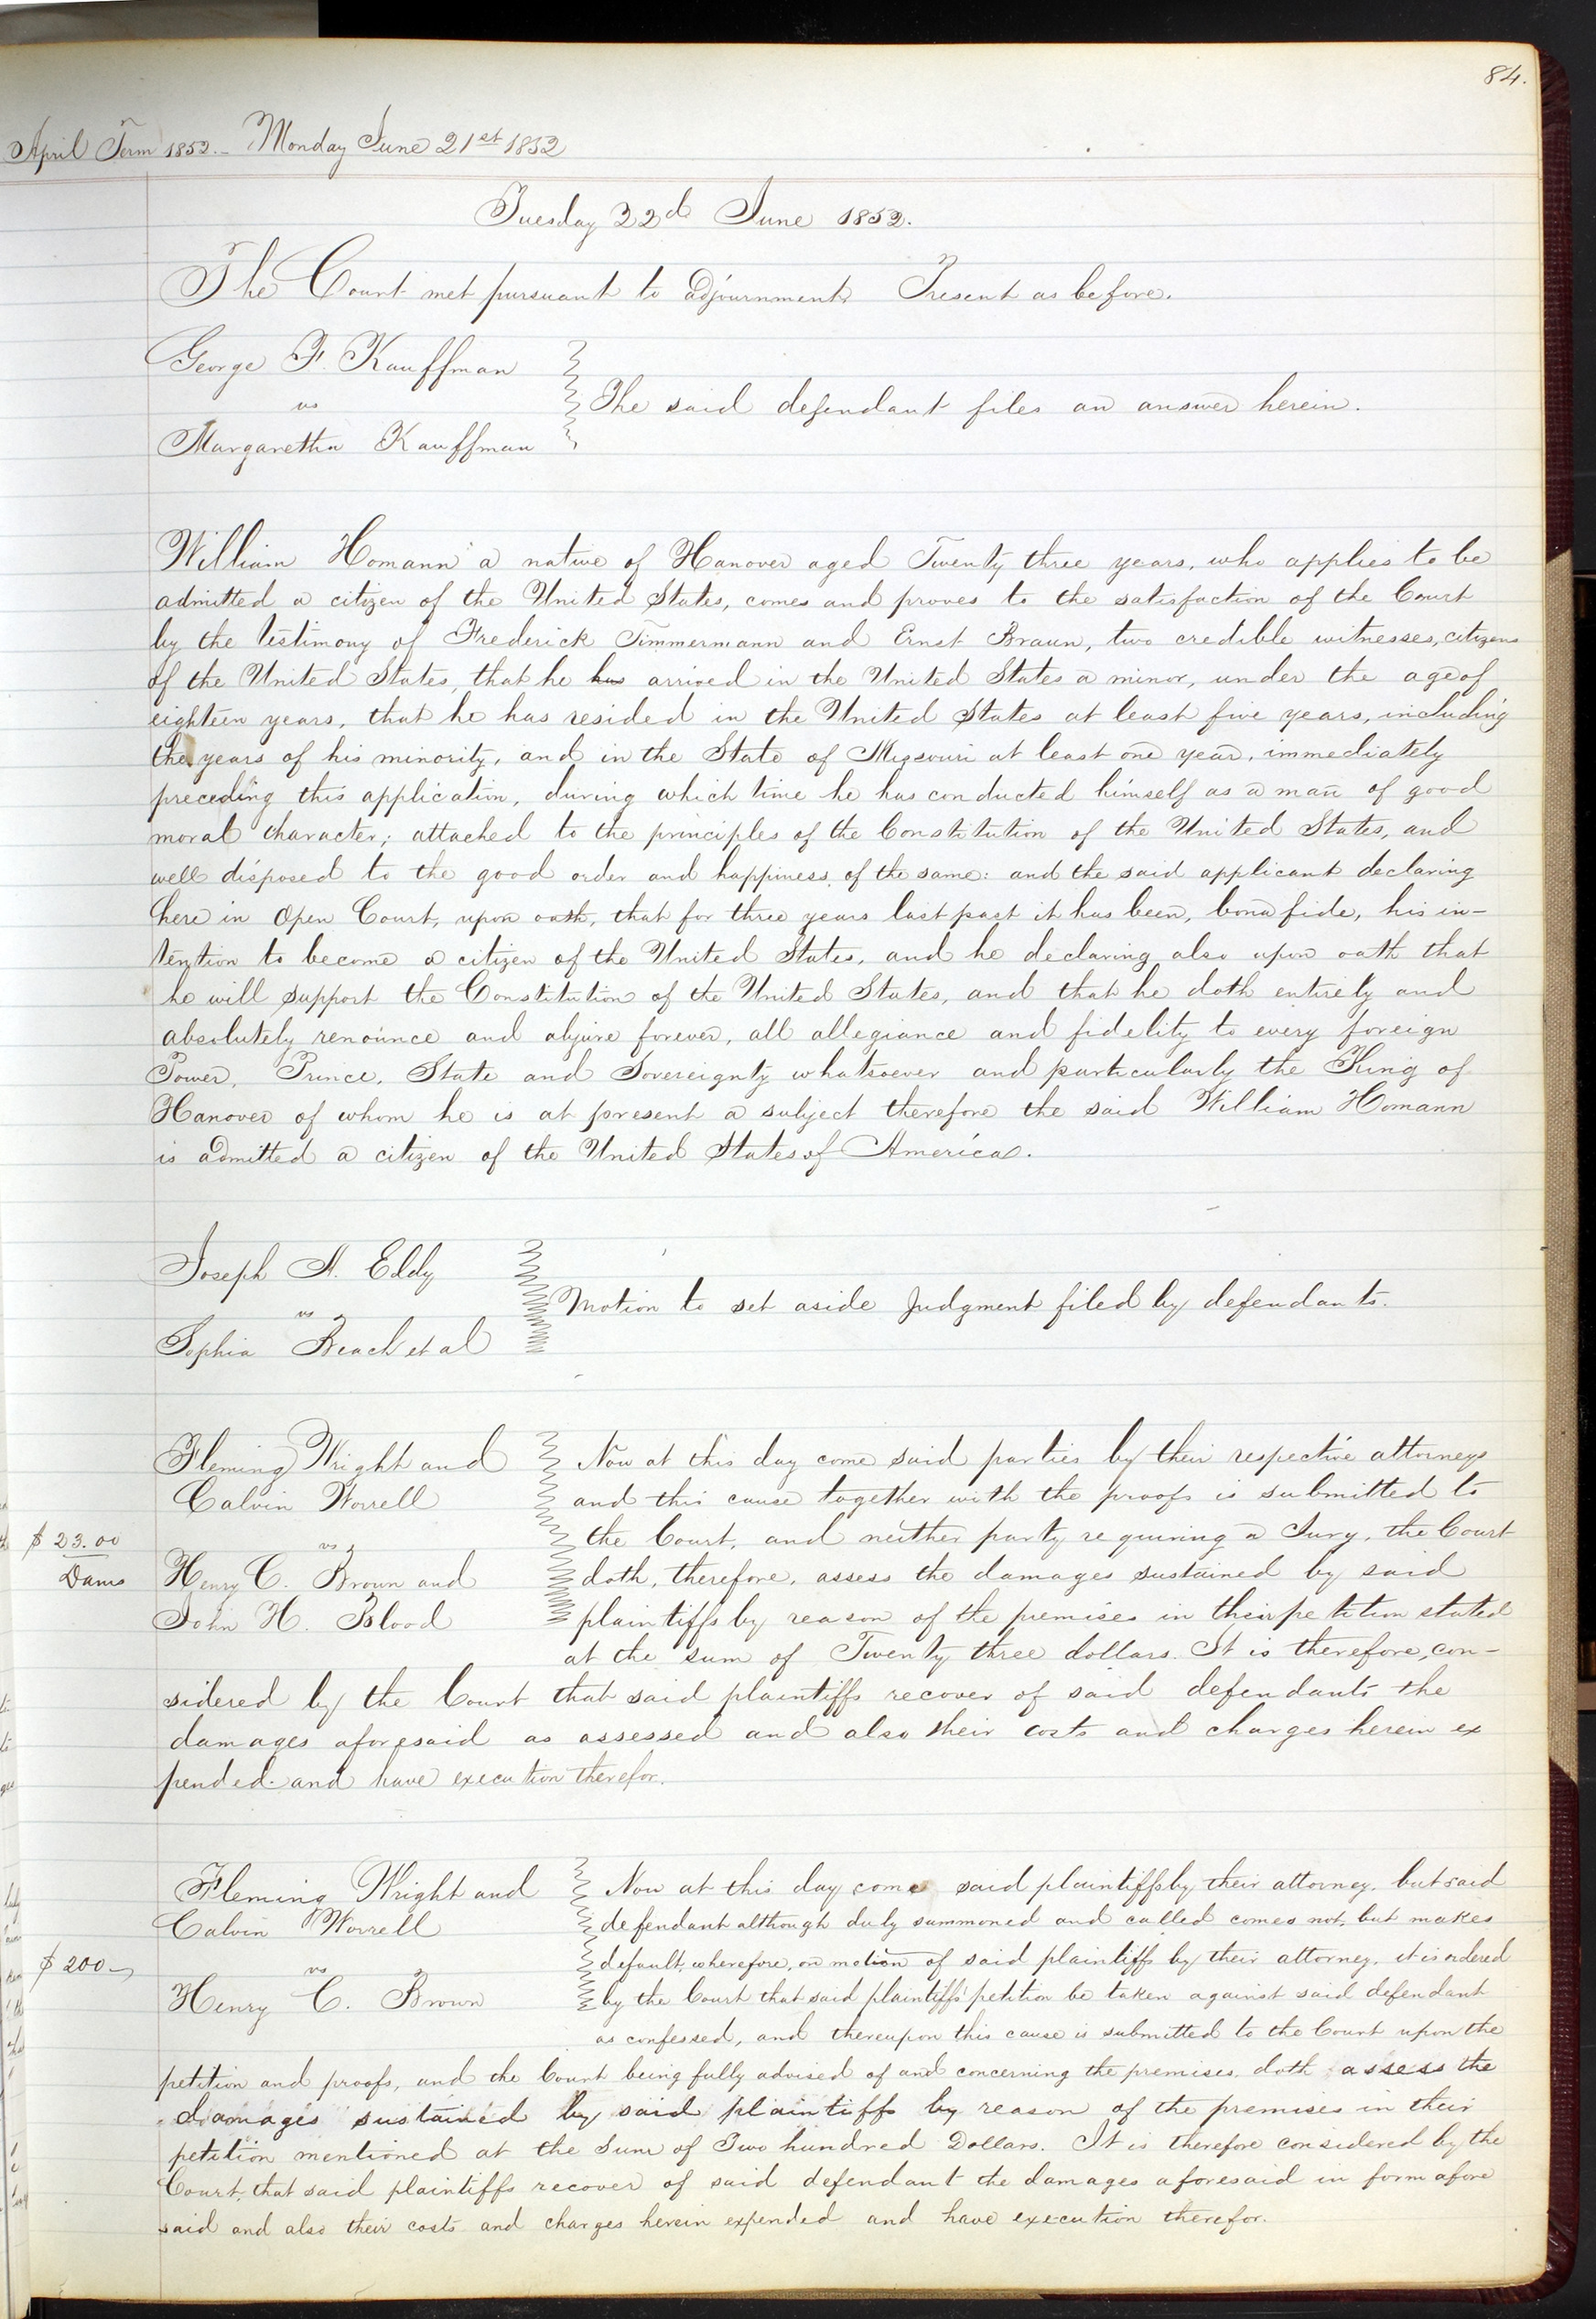 84.
April Term 1852.- Monday June 21st 1852
Tuesday 22d June 1852.
The Court met pursuant to adjournment Present as before.
George F. Kauffman
vs
Margaretha Kauffman
The said defendant files an answer herein.
William Homann a native of Hanover aged Twenty three years, who applies to be
admitted a citizen of the United States, comes and proves to the satisfaction of the Court
by the testimony of Frederick Timmermann and Ernst Braun, two credible witnesses, citizens
of the United States, that he has arrived in the United States a minor, under the age of
eighteen years, that he has resided in the United States at least five years, including
the years of his minority, and in the State of Missouri at least one year, immediately
preceding this application, during which time he has conducted himself as a man of good
moral character; attached to the principles of the Constitution of the United States, and
well disposed to the good order and happiness of the same: and the said applicant declaring
here in Open Court, upon oath, that for three years last past it has been, bona fide, his in-
tention to become a citizen of the United States, and he declaring also upon oath that
he will support the Constitution of the United States, and that he doth entirely and
absolutely renounce and abjure forever, all allegiance and fidelity to every foreign
Power, Prince, State and Sovereignty whatsoever and particularly the King of
Hanover of whom he is at present a subject therefore the said William Homann
is admitted a citizen of the United States of America.
Joseph A. Eddy
vs
Sophia Beach et al
Motion to set aside Judgment filed by defendants.
Fleming Wright and
Calvin Worrell
vs
Henry C. Brown and
John H. Blood
$ 23.00
Dams
Now at this day come said parties by their respective attorneys
and this cause together with the proofs is submitted to
the Court, and neither party requiring a Jury, the Court
doth, therefore, assess the damages sustained by said
plaintiffs by reason of the premises in their petition stated
at the sum of Twenty three dollars. It is therefore, con-
sidered by the Court that said plaintiffs recover of said defendants the
damages aforesaid as assessed and also their costs and charges herein ex
pended and have execution therefor.
Fleming Wright and
Calvin Worrell
vs
Henry C. Brown
$ 200-
Now at this day come said plaintiffs by their attorney, but said
defendant although duly summoned and called comes not, but makes
default, wherefore, on motion of said plaintiffs by their attorney, it is ordered
by the Court that said plaintiffs' petition be taken against said defendant
as confessed, and thereupon this cause is submitted to the Court upon the
petition and proofs, and the Court being fully advised of and concerning the premises, doth assess the
damages sustained by said plaintiffs by reason of the premises in their
petition mentioned at the Sum of Two hundred Dollars. It is therefore considered by the
Court, that said plaintiffs recover of said defendant the damages aforesaid in form afore
said and also their costs and charges herein expended and have execution therefor.